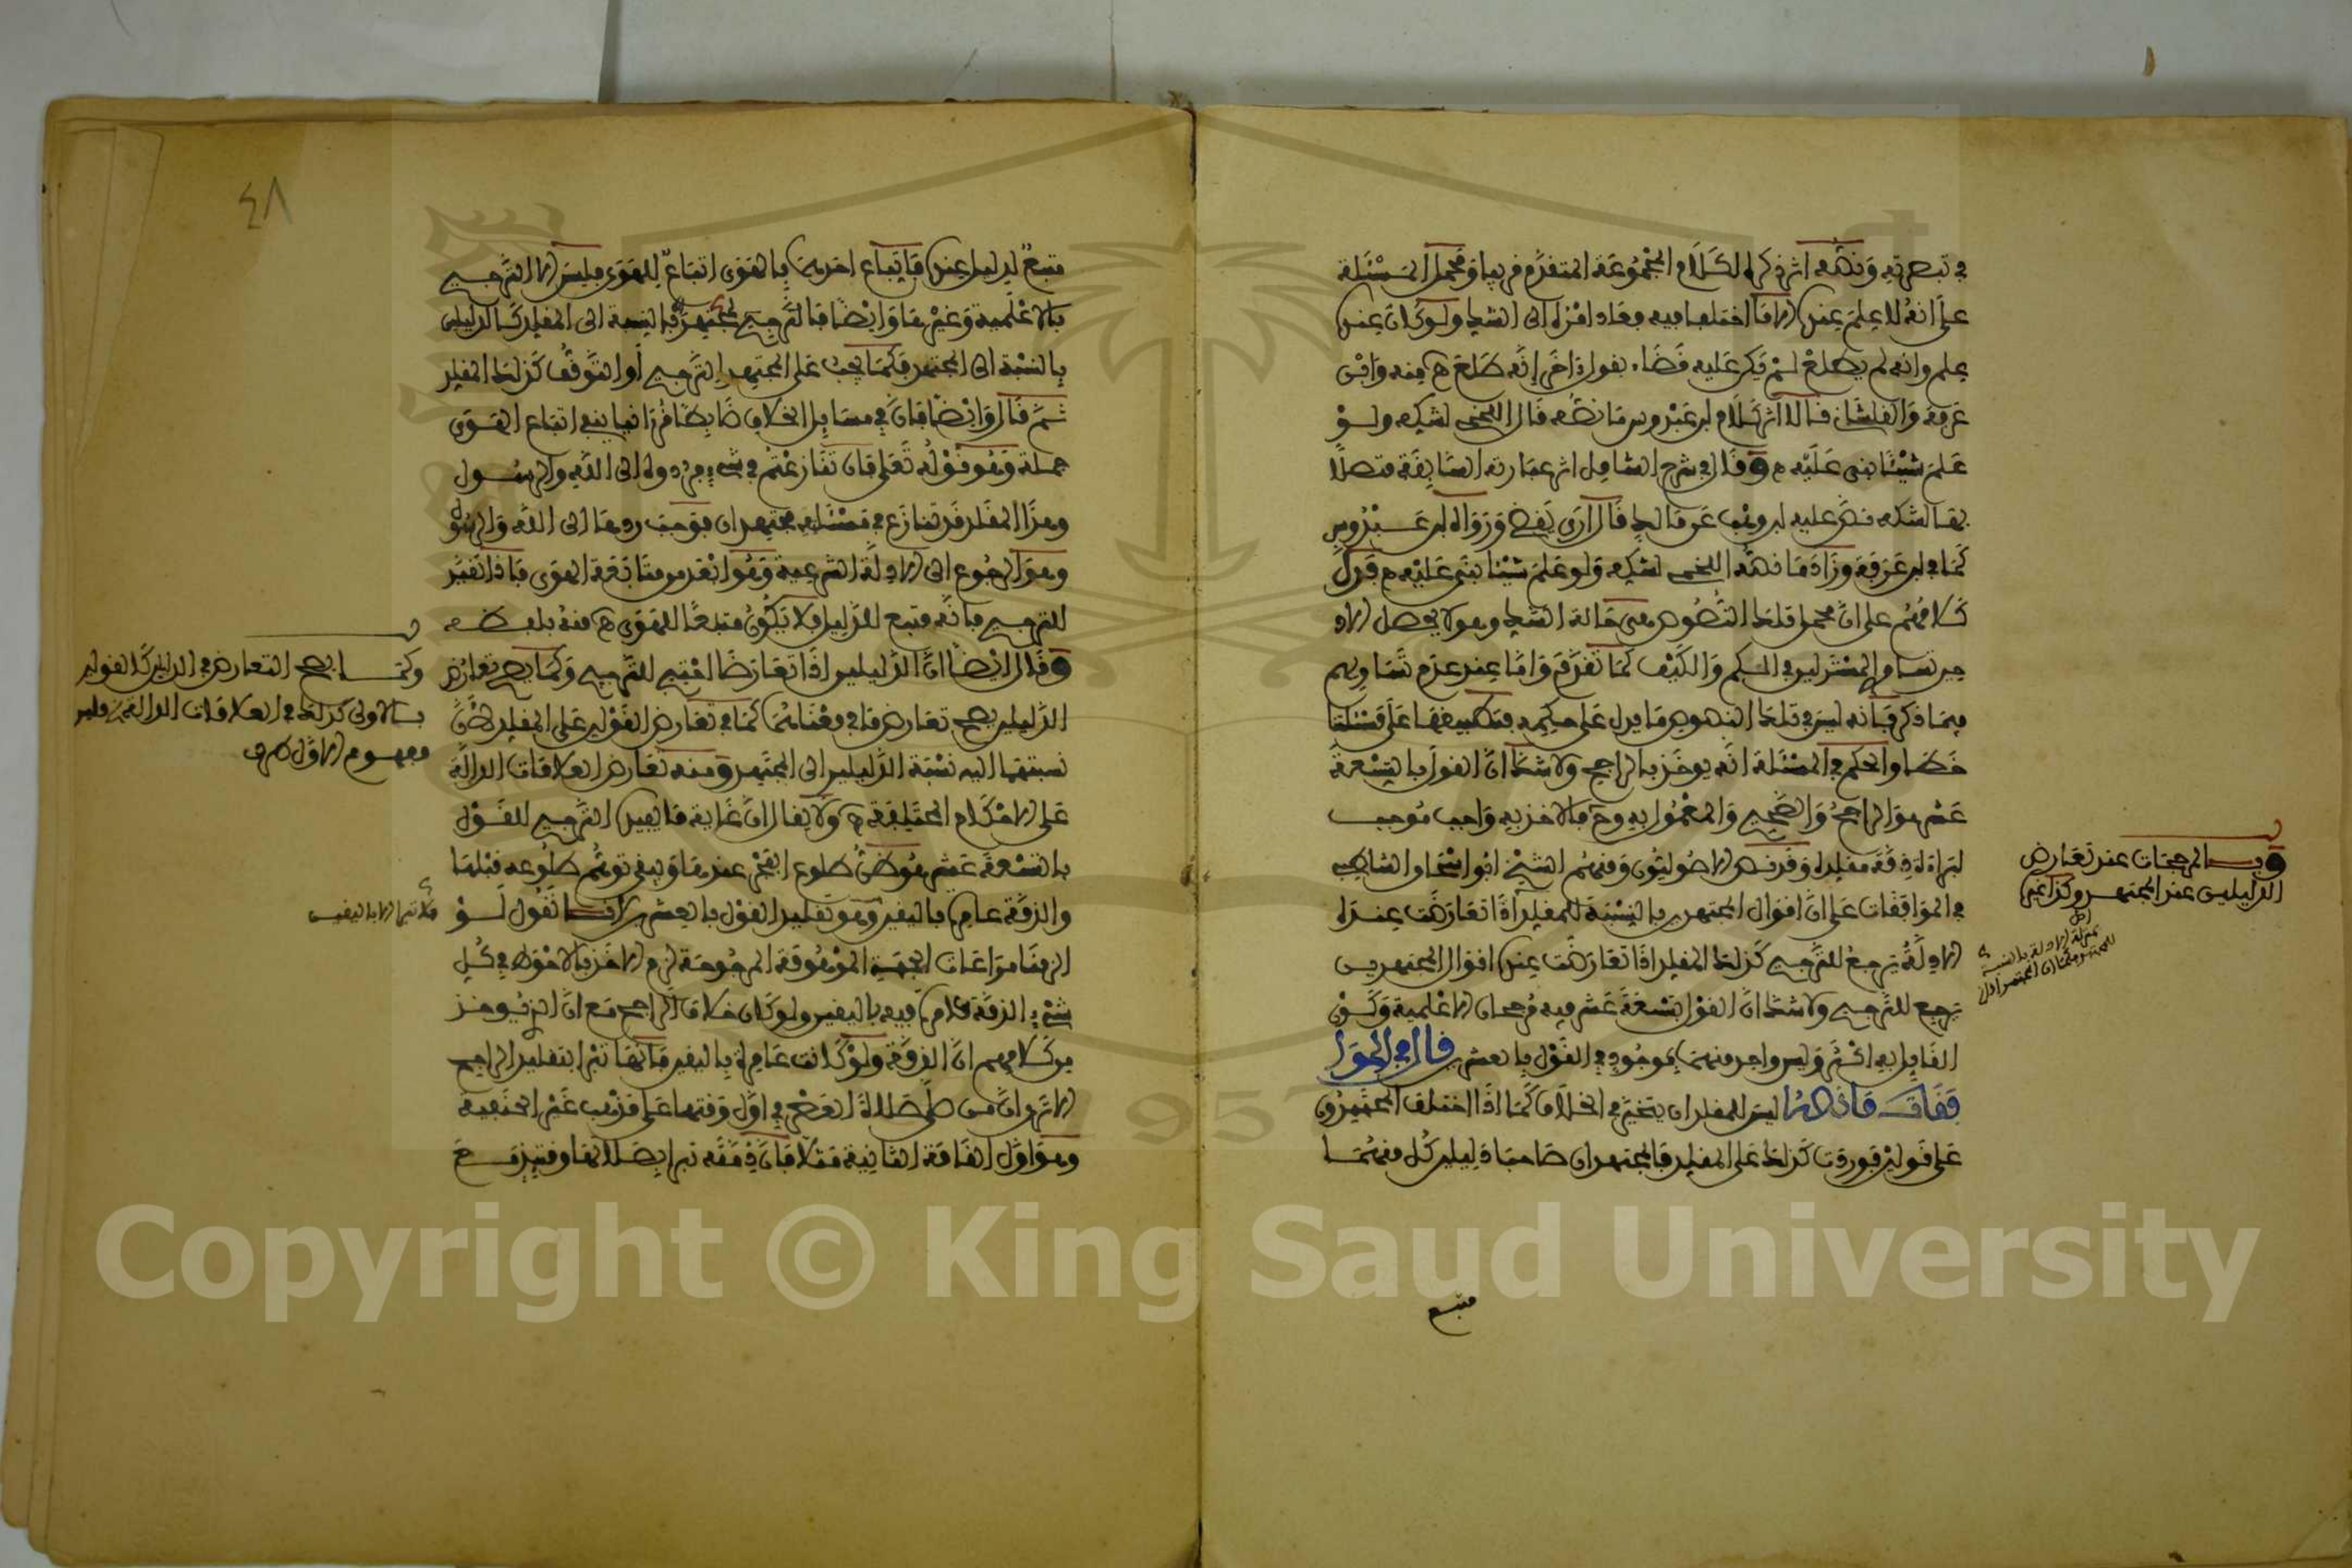 في تبصرته ونصه اثر ذكره لكلام المجموعة المتقدم قريبا ومحمل المسئلة
على انه لا علم عنده الا ما اختلفا فيه فعاد امره الى الشك ولو كان عنده
علم وانه لم يطلع لم يكن عليه قضاء بقول ذاخر إنه طلع ه منه وابن
عرفة والقلشاني قالا اثر كلام ابن عبدوس ما نصه قال اللخمي لشكه ولو
علم شيئا بنى عليه ه وقال في شرح الشامل اثر عبارته السابقة متصلا
بقا لشكه نص عليه ابن وهب عن مالك قال ارى يقضي ورواه ابن عبدوس
كما في ابن عرفة وزاد ما نصه اللخمي لشكه ولو علم شيئا بنى عليه ه فدل
كلامهم على ان محمل تلك النصوص هي حالة الشك وهو لا يحصل الا
حين تساوي المستدلين في الكم والكيف كما تقدم واما عند عدم تساويهم
فيما ذكر فإنه ليس في تلك النصوص ما يدل على حكمه فتطبيقها على مسئلتنا
خطا والحكم في المسئلة انه يوخذ بالراجح ولا شك ان القول بالتسعة
عشر هو الراجح والصحيح والمعمول به وح فالاخذ به واجب موجب
لبراءة ذمة مقلده وقد نص الاصوليون ومنهم الشيخ ابو اسحاق الشاطبي
في الموافقات على ان اقوال المجتهدين بالنسبة للمقلد اذا تعارضت عنده
الادلة يرجع للترجيح كذلك المقلد اذا تعارضت عنده اقوال المجتهدين
يرجع للترجيح ولا شك ان القول بتسعة عشر فيه مرجحان الاعلمية وكون
القايل به اكثر وليس واحد منهما بموجود في القول بالعشرين قال في الموا
فقات ما نصه ليس للمقلد ان يتخير في الخلاف كما اذا اختلف المجتهدون
على قولين فوردت كذلك على المقلد فالمجتهدان صاحبا دليلين كل منهما
وبـ المرجحات عند تعارض
الدليلين عند المجتهد وكذا غير
متبع
٤٨
متبع لدليل عنده فاتباع احدهما بالهوى اتباع للهوى فليس الا الترجيح
بالاعلمية وغيرها وايضا فالمجتهدان بالنسبة الى المقلد كالدليلين
بالنسبة الى المجتهد فكما يجب على المجتهد الترجيح أو التوقف كذلك المقلد
ثم قال وايضا فان في مسايل الخلاف ضابطا قرانيا ينفي اتباع الهوى
جملة وهو قوله تعلى فان تنازعتم في شيء فردوه الى الله والرسول
وهذا المقلد قد تنازع في مسئلته مجتهدان فوجب ردها الى الله والرسول
وهو الرجوع الى الادلة الشرعية وهو ابعد من متابعة الهوى فاذا تقيد
للترجيح فانه متبع للدليل ولا يكون متبعا للهوى ه منه بلفظه
وقال ايضا ان الدليلين اذا تعارضا احتيج للترجيح وكما يصح تعارض
الدليلين يصح تعارض ما في معناهما كما في تعارض القولين على المقلد لأن
نسبتهما اليه نسبة الدليلين الى المجتهد ومنه تعارض العلامات الدالة
على الاحكام المختلفة ه ولا يقال ان غاية ما يفيده الترجيح للقول
بالتسعة عشر هو ظن طلوع الفجر عندها وينفي توهم طلوعه قبلها
والذمة عامرة باليقين وهو تقليد القول بالعشرين لانا نقول لو
الزمنا مراعات الجهة الموهومة المرجوحة لزم الاخذ بالاحوط في كل
شيء الذمة عامرة فيه باليقين ولو كان خلاف الراجح مع ان الذي يوخذ
من كلامهم ان الذمة ولو كانت عامرة باليقين فانها تبرا بتقليد الراجح
الا ترى ان من صلى صلاة العصر في اول وقتها على مذهب غير الحنفية
وهو اول القامة الثانية مثلا فان ذمته تبرا بصلاتها وقتيذ مع
وكما يصح التعارض في الدليلين كالقولين
بالاولى كذلك في العلامات الدالة
فلا تبرا الا باليقين
Copyright © King Saud University
1957